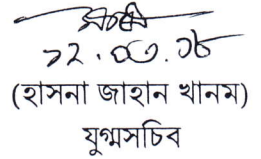 ১২.০৩.১৮
(হাসনা জাহান খানম)
যুগ্মসচিব